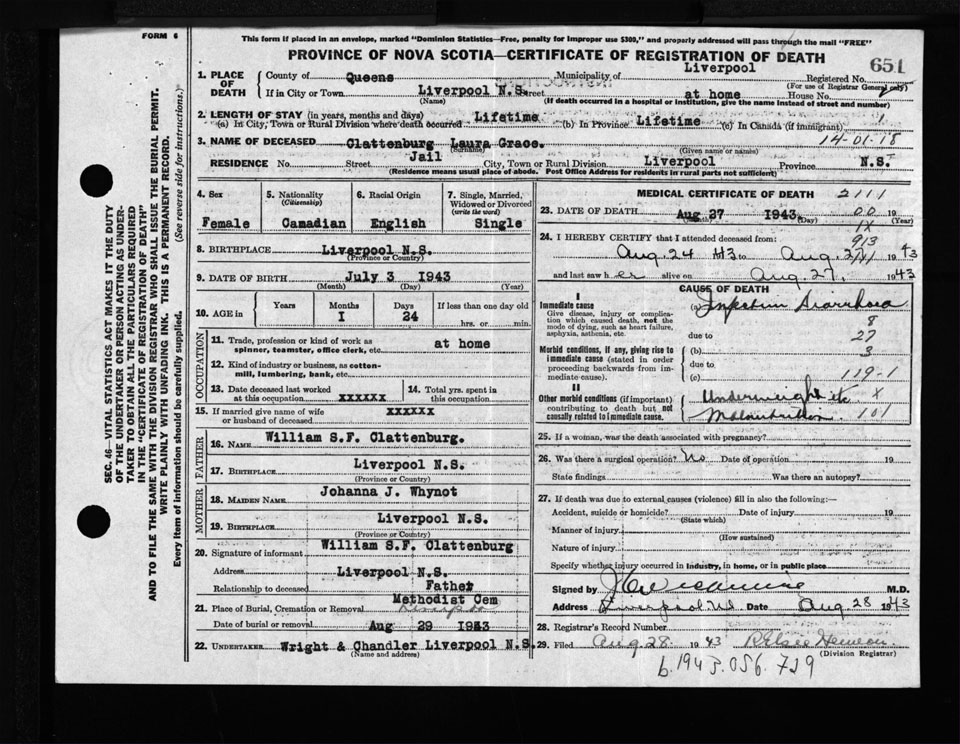 FORM 6
This form if placed in an envelope, marked "Dominion Statistics—Free, penalty for improper use $300," and properly addressed will pass through the mail "FREE"
PROVINCE OF NOVA SCOTIA—CERTIFICATE OF REGISTRATION OF DEATH
651
SEC. 46—VITAL STATISTICS ACT MAKES IT THE DUTY
OF THE UNDERTAKER OR PERSON ACTING AS UNDER-
TAKER TO OBTAIN ALL THE PARTICULARS REQUIRED
IN THE "CERTIFICATE OF REGISTRATION OF DEATH"
AND TO FILE THE SAME WITH THE DIVISION REGISTRAR WHO SHALL ISSUE THE BURIAL PERMIT.
WRITE PLAINLY WITH UNFADING INK. THIS IS A PERMANENT RECORD.
Every item of information should be carefully supplied. (See reverse side for instructions.)
1. PLACE OF DEATH
County of Queens Municipality of Liverpool Registered No.
(For use of Registrar General only)
If in City or Town Liverpool N.S. Street at home House No.
(Name) (If death occurred in a hospital or institution, give the name instead of street and number)
2. LENGTH OF STAY (in years, months and days)
(a) In City, Town or Rural Division where death occurred Lifetime (b) In Province Lifetime (c) In Canada (if immigrant) 1
14-01-18
3. NAME OF DECEASED Clattenburg Laura Grace.
(Surname) (Given name or names)
RESIDENCE No. Street Jail City, Town or Rural Division Liverpool Province N.S.
(Residence means usual place of abode. Post Office Address for residents in rural parts not sufficient)
4. Sex Female
5. Nationality (Citizenship) Canadian
6. Racial Origin English
7. Single, Married, Widowed or Divorced (write the word) Single
8. BIRTHPLACE Liverpool N.S.
(Province or Country)
9. DATE OF BIRTH July 3 1943
(Month) (Day) (Year)
10. AGE in Years Months I Days 24 If less than one day old hrs. or min.
OCCUPATION
11. Trade, profession or kind of work as spinner, teamster, office clerk, etc. at home
12. Kind of industry or business, as cotton-mill, lumbering, bank, etc.
13. Date deceased last worked at this occupation xxxxxx
14. Total yrs. spent in this occupation
15. If married give name of wife or husband of deceased xxxxxx
FATHER
16. Name William S.F. Clattenburg.
17. Birthplace Liverpool N.S.
(Province or Country)
MOTHER
18. Maiden Name Johanna J. Whynot
19. Birthplace Liverpool N.S.
(Province or Country)
20. Signature of informant William S.F. Clattenburg
Address Liverpool N.S.
Relationship to deceased Father
21. Place of Burial, Cremation or Removal Methodist Cem
Date of burial or removal Aug 29 1943
22. UNDERTAKER Wright & Chandler Liverpool N.S.
(Name and address)
MEDICAL CERTIFICATE OF DEATH 2111
23. DATE OF DEATH Aug 27 1943 00 19
(Month) (Day) (Year)
1X
24. I HEREBY CERTIFY that I attended deceased from: 913
Aug. 24 43 to Aug. 27 1943
and last saw her alive on Aug. 27, 1943
CAUSE OF DEATH
I
Immediate cause
Give disease, injury or complication which caused death, not the mode of dying, such as heart failure, asphyxia, asthenia, etc.
(a) Infectious Diarrhoea
8
due to 27
Morbid conditions, if any, giving rise to immediate cause (stated in order proceeding backwards from immediate cause).
(b) 3
due to
(c) 119-1
II
Other morbid conditions (if important) contributing to death but not causally related to immediate cause.
Underweight etc X
Malnutrition 101
25. If a woman, was the death associated with pregnancy?
26. Was there a surgical operation? No Date of operation 19
State findings Was there an autopsy?
27. If death was due to external causes (violence) fill in also the following:—
Accident, suicide or homicide? Date of injury 19
(State which)
Manner of injury
(How sustained)
Nature of injury
Specify whether injury occurred in industry, in home, or in public place
Signed by M.D.
Address Liverpool N.S. Date Aug. 28 1943
28. Registrar's Record Number
29. Filed Aug. 28 1943
(Division Registrar)
b. 1943. 056. 729